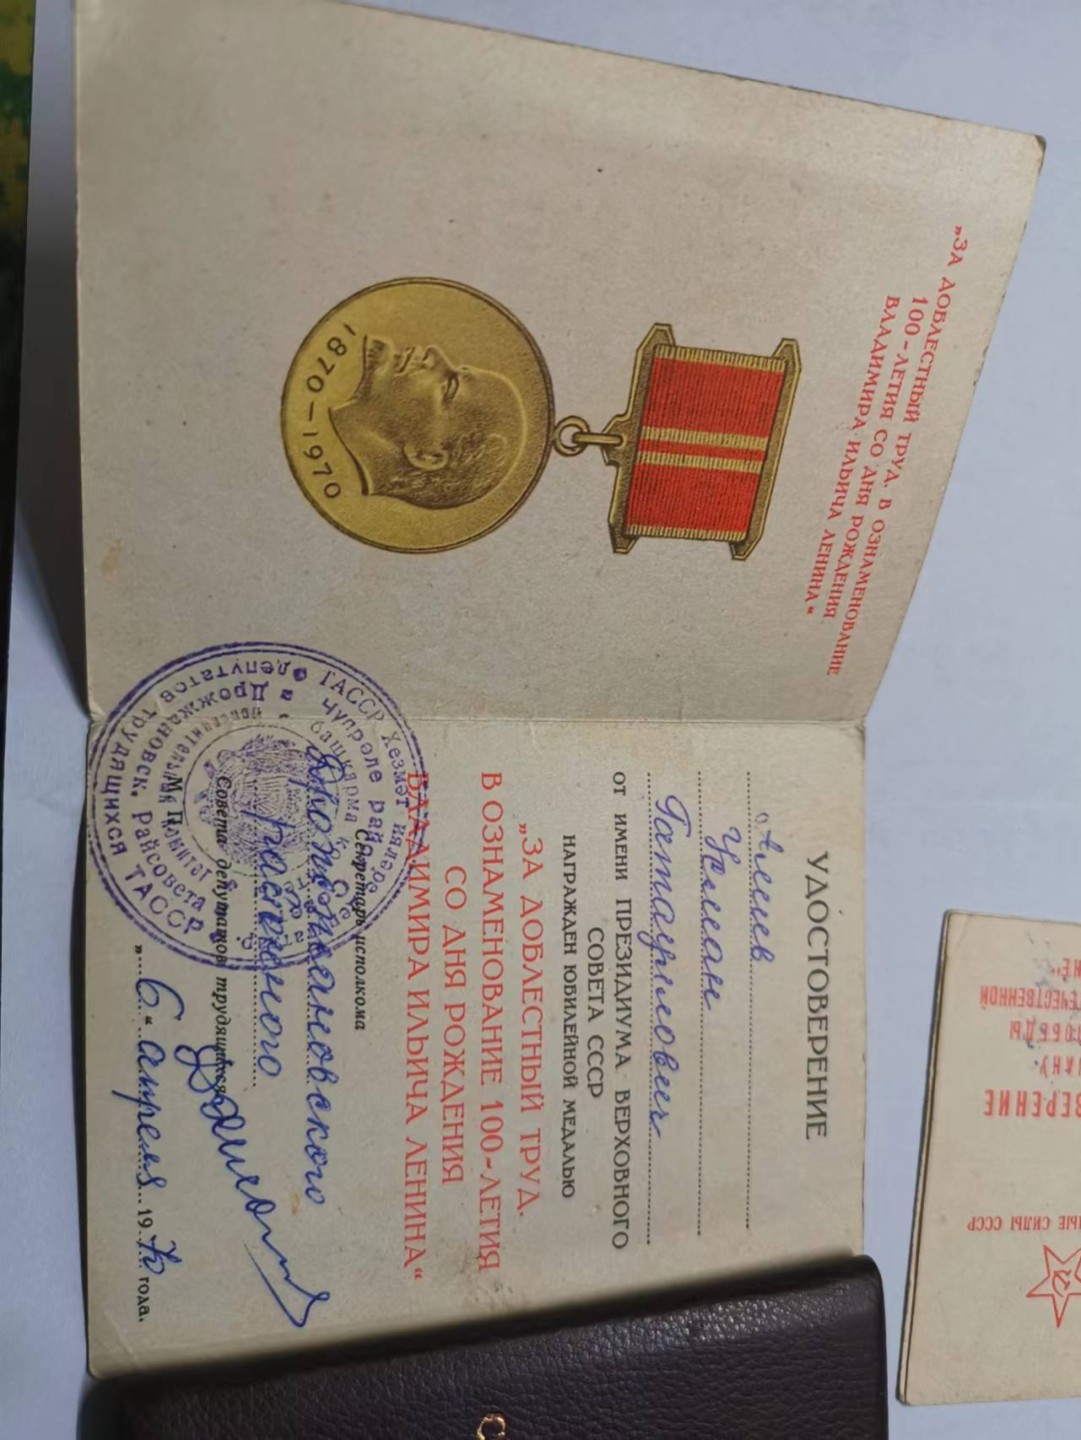 „ЗА ДОБЛЕСТНЫЙ ТРУД. В ОЗНАМЕНОВАНИЕ
100-ЛЕТИЯ СО ДНЯ РОЖДЕНИЯ
ВЛАДИМИРА ИЛЬИЧА ЛЕНИНА“
1870–1970
УДОСТОВЕРЕНИЕ
Алеев
Усман
Гатауллович
ОТ ИМЕНИ ПРЕЗИДИУМА ВЕРХОВНОГО
СОВЕТА СССР
НАГРАЖДЕН ЮБИЛЕЙНОЙ МЕДАЛЬЮ
„ЗА ДОБЛЕСТНЫЙ ТРУД.
В ОЗНАМЕНОВАНИЕ 100-ЛЕТИЯ
СО ДНЯ РОЖДЕНИЯ
ВЛАДИМИРА ИЛЬИЧА ЛЕНИНА“
Секретарь исполкома
Дрожжановского
районного
Совета депутатов трудящихся
М. П.
„6“ апреля 1970 года.
ТАССР Хезмәт ияләре
Чүпрәле район
башкарма
депутатов трудящихся ТАССР
Дрожжановск. райсовета
ВЕРЕНИЕ
ЕЧЕСТВЕННОЙ
НЫЕ СИЛЫ СССР